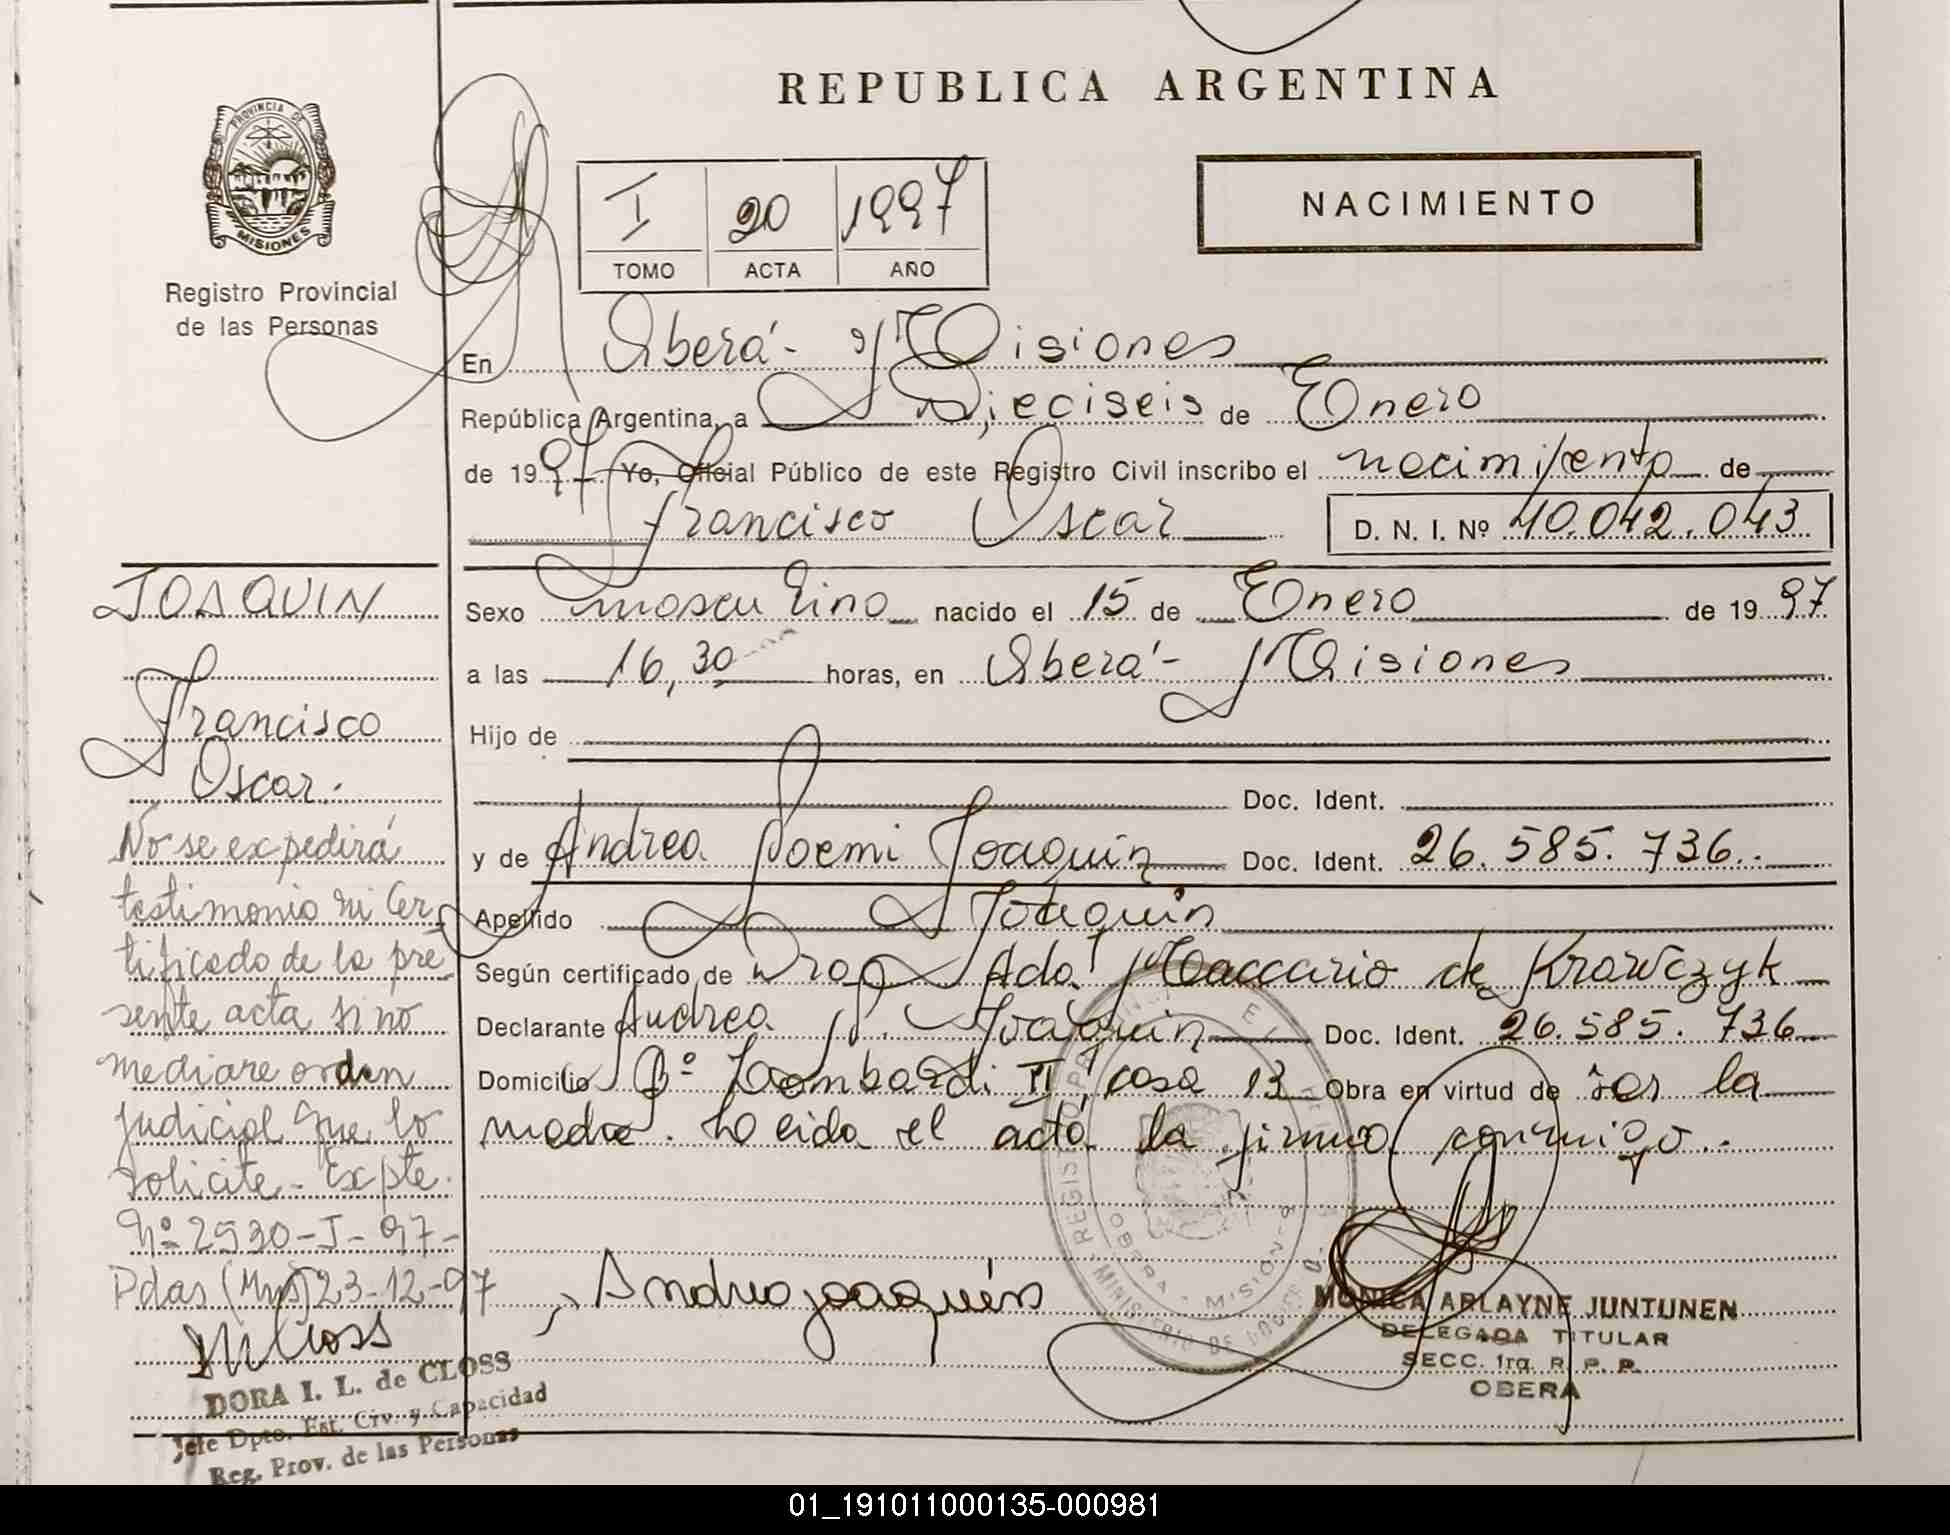 PROVINCIA DE
MISIONES
Registro Provincial
de las Personas
REPUBLICA ARGENTINA
I 20 1997
TOMO ACTA AÑO
NACIMIENTO
En Oberá - Misiones
República Argentina, a Dieciseis de Enero
de 1997 Yo, Oficial Público de este Registro Civil inscribo el nacimiento de
Francisco Oscar D. N. I. Nº 40.042.043
Sexo masculino nacido el 15 de Enero de 1997
a las 16,30 horas, en Oberá - Misiones
Hijo de
Doc. Ident.
y de Andrea Noemi Joaquin Doc. Ident. 26.585.736.
Apellido Joaquin
Según certificado de Dra Ada Maccario de Krawczyk
Declarante Andrea N. Joaquin Doc. Ident. 26.585.736
Domicilio Bº Lombardi II, casa 13 Obra en virtud de ser la
madre. Leida el acta la firma conmigo.
JOAQUIN
Francisco
Oscar.
No se expedirá
testimonio ni Cer
tificado de la pre
sente acta si no
mediare orden
judicial que lo
solicite - Expte.
Nº 2530-J-97-
Pdas (Mns) 23-12-97
DORA I. L. de CLOSS
Jefe Dpto. Est. Civ. y Capacidad
Reg. Prov. de las Personas
Andrea joaquin
OBERA - MISIONES
MONICA ARLAYNE JUNTUNEN
DELEGADA TITULAR
SECC. 1ra. R. P. P.
OBERA
01_191011000135-000981